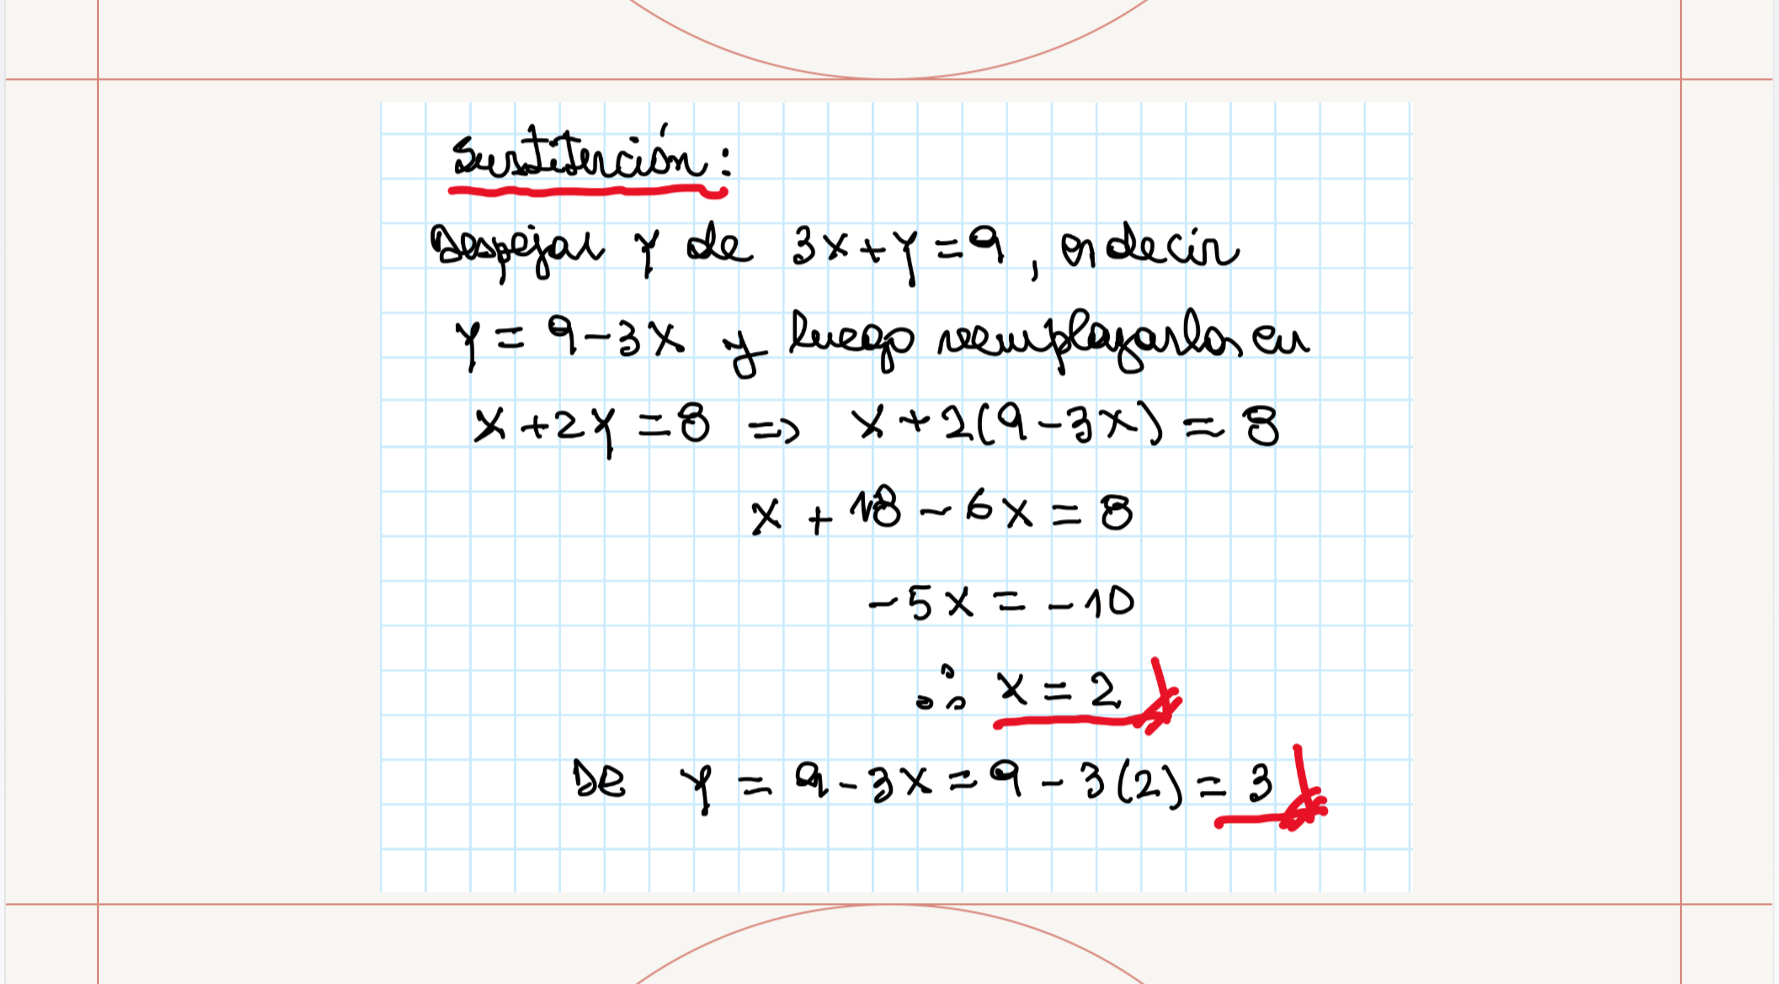 Sustitución:
Despejar y de 3x+y=9, es decir
y = 9-3x y luego reemplazarlo en
x+2y=8 => x+2(9-3x)=8
x + 18 - 6x = 8
-5x = -10
∴ x = 2
De y = 9-3x = 9-3(2) = 3